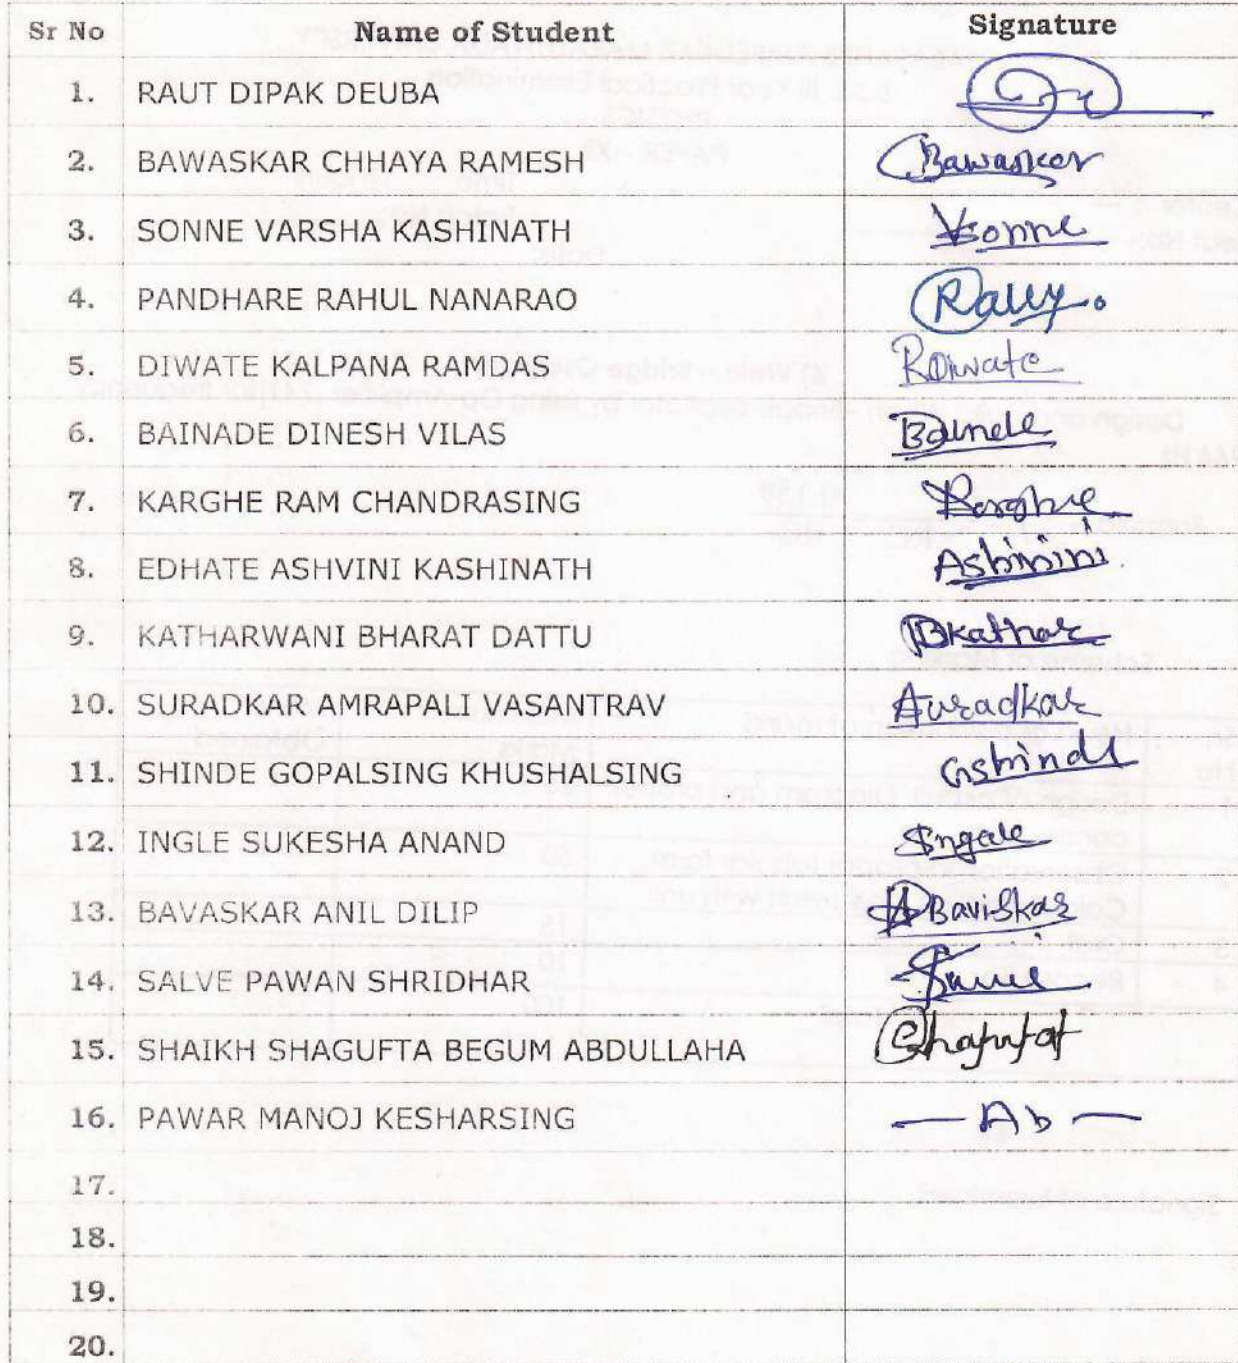 Sr No Name of Student Signature
1. RAUT DIPAK DEUBA
2. BAWASKAR CHHAYA RAMESH Bawasker
3. SONNE VARSHA KASHINATH VSonne
4. PANDHARE RAHUL NANARAO
5. DIWATE KALPANA RAMDAS
6. BAINADE DINESH VILAS
7. KARGHE RAM CHANDRASING
8. EDHATE ASHVINI KASHINATH
9. KATHARWANI BHARAT DATTU BKathar
10. SURADKAR AMRAPALI VASANTRAV Auradkar
11. SHINDE GOPALSING KHUSHALSING GShinde
12. INGLE SUKESHA ANAND
13. BAVASKAR ANIL DILIP ABaviskar
14. SALVE PAWAN SHRIDHAR
15. SHAIKH SHAGUFTA BEGUM ABDULLAHA
16. PAWAR MANOJ KESHARSING — Ab —
17.
18.
19.
20.